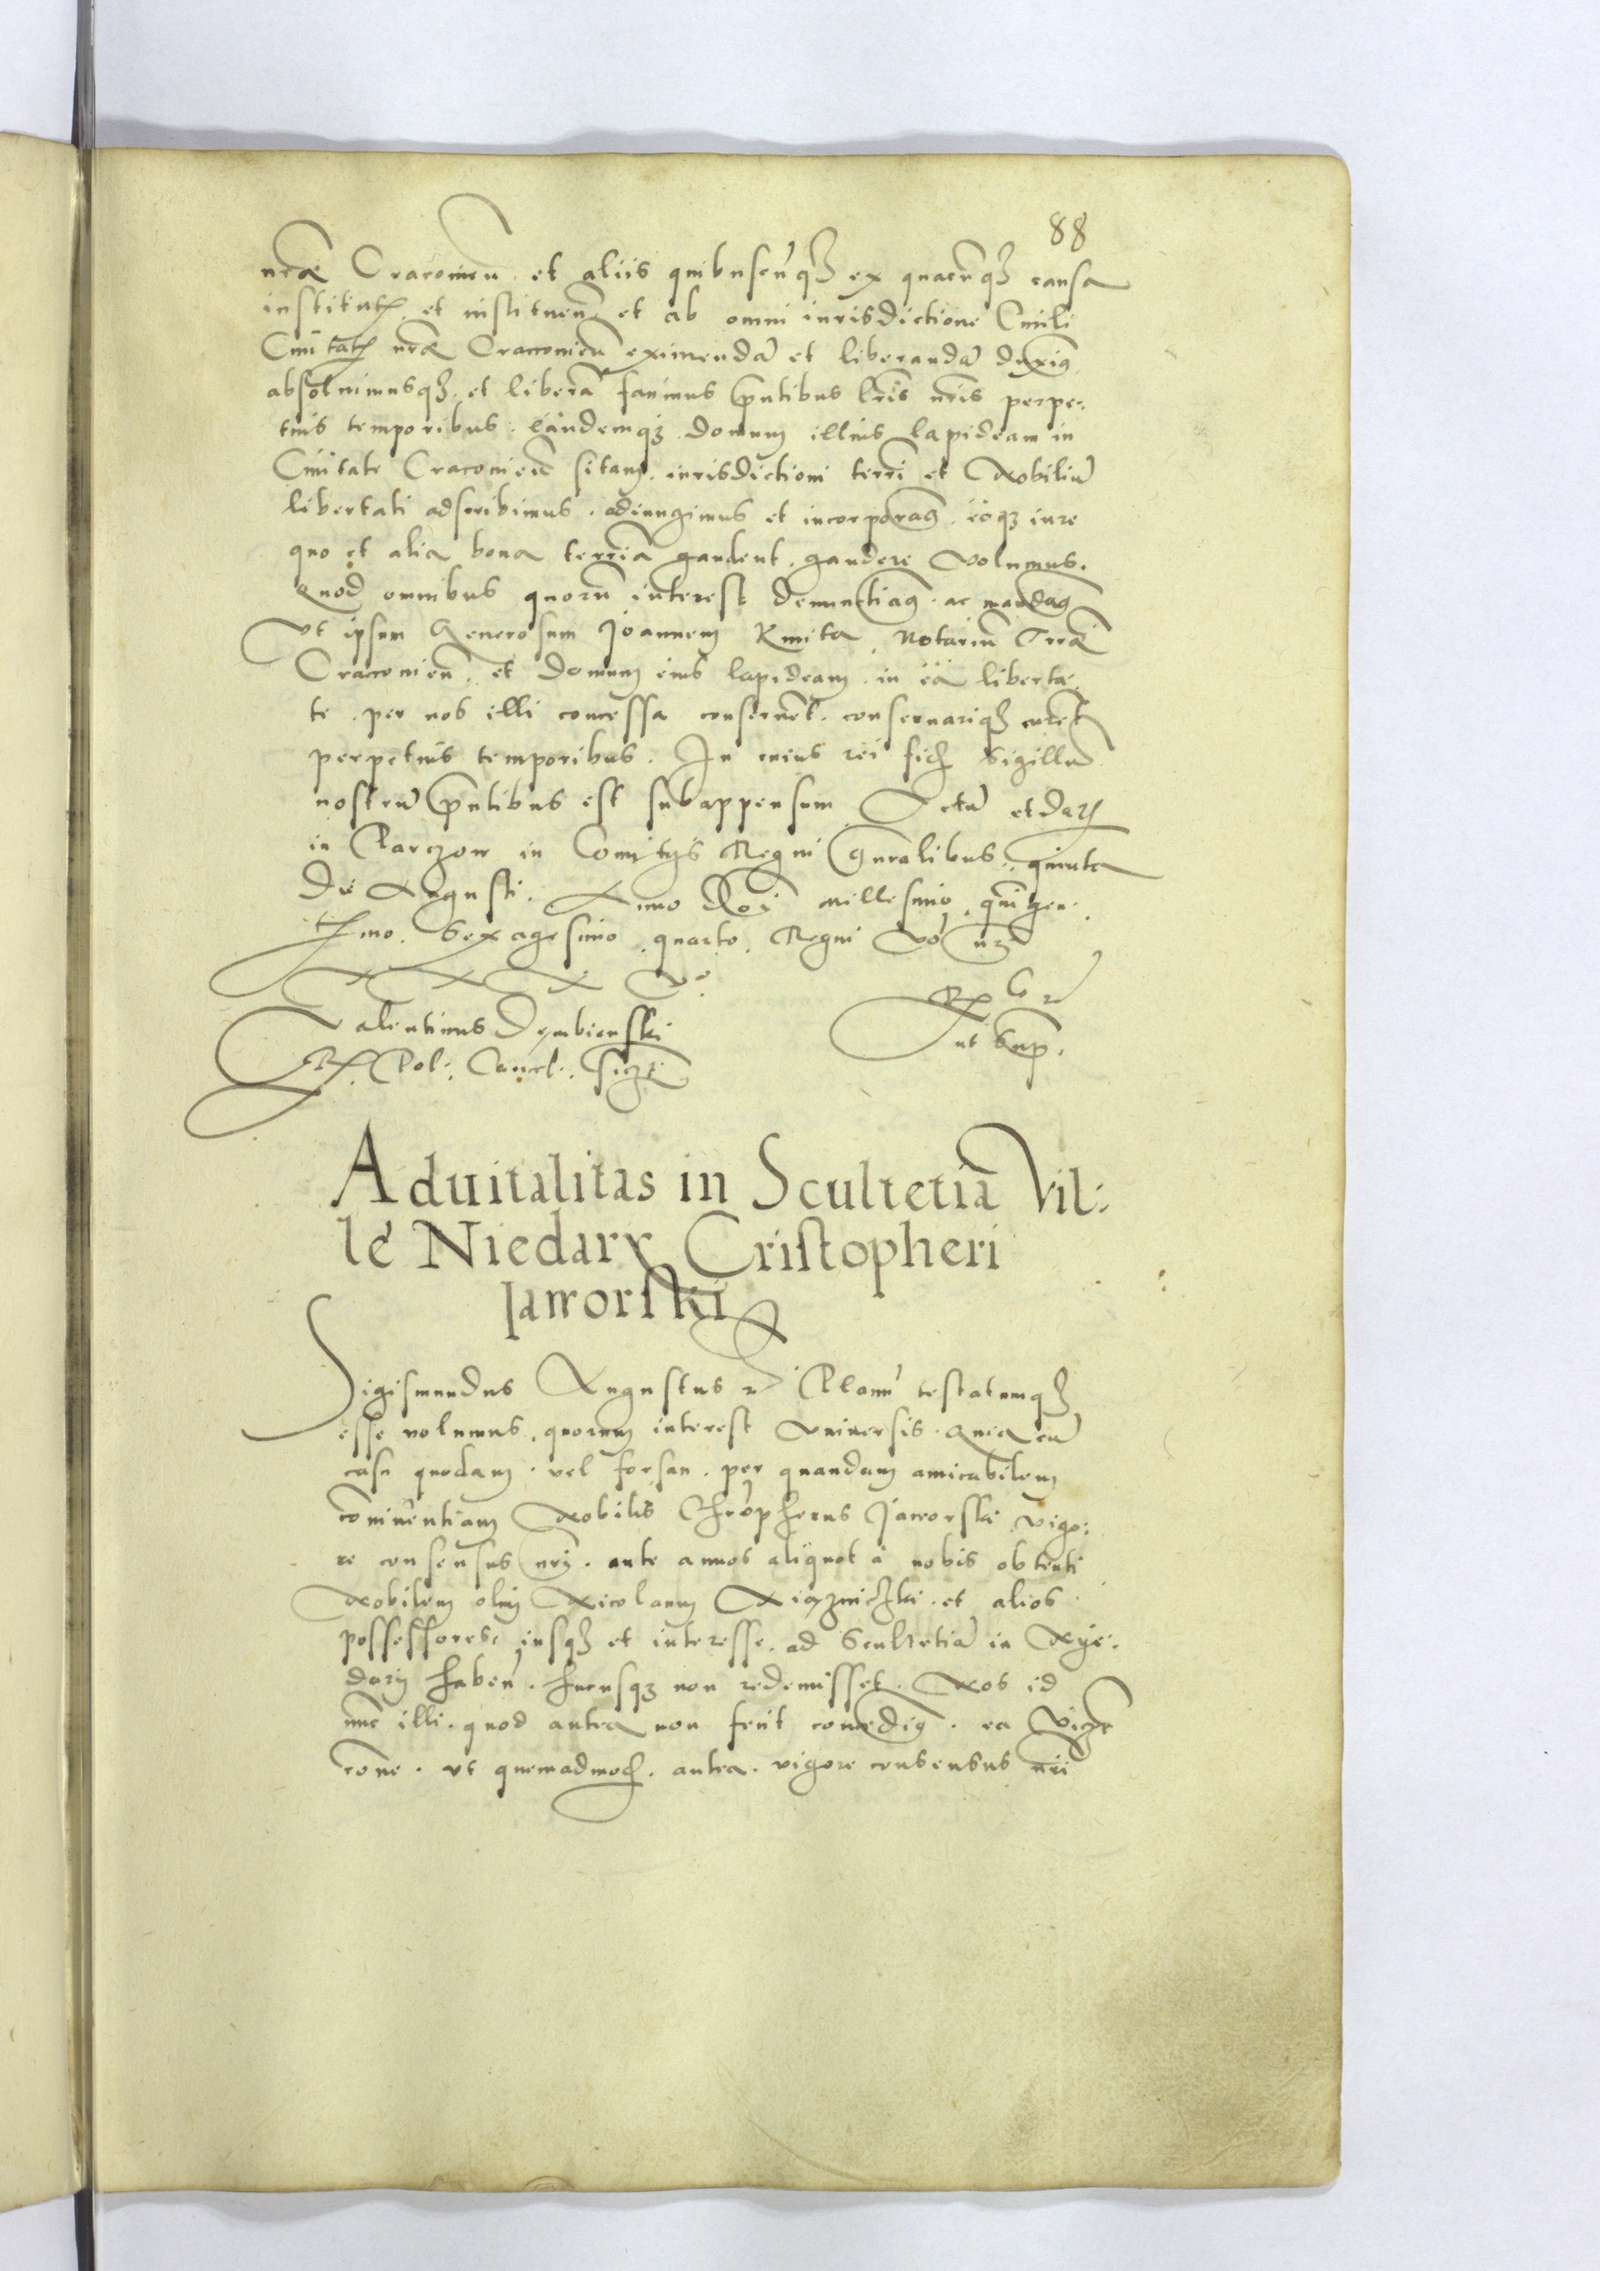 88
nrae Cracouien et aliis quibuscunqz ex quacunqz causa
institutis et instituen et ab omni iurisdictione Ciuili
Ciuitatis nrae Cracouien eximendam et liberandam duximus
absoluimusqz et liberam facimus pntibus lris nris perpe.
tuis temporibus. eandemqz domum illius lapideam in
Ciuitate Cracouien sitam iurisdictioni terri et Nobilium
libertati adscribimus. adiungimus et incorporamus. eoqz iure
quo et alia bona terria gaudent. gaudere volumus.
Quod omnibus quorum interest denunctiamus. ac mandamus
Vt ipsum Generosum Joannem Kmita Notarium Trrae
Cracouien. et domum eius lapideam. in ea liberta
te. per nos illi concessa conseruent. conseruariqz curent
perpetuis temporibus. In cuius rei fidem Sigillum
nostrum pntibus est subappensum Actum et datum
in Parczow in Comitys Regni Gnralibus. quinta
die Augusti. Anno Dni millesimo quingen.
tesimo Sexagesimo quarto. Regni vo nri
XXXV°.
Valentinus Dembienski
R. Pol: Cancel: sszt
Rlo r
ut sup.
Aduitalitas in Scultetia Vil:
le Niedary Cristopheri
Jaworski
Sigismundus Augustus r Planum testatumqz
esse volumus, quorum interest vniuersis. Quia cum
casu quodam. vel forsan. per quandam amicabilem
conniuentiam Nobilis Chropherus Jaworski vigo:
re consensus nri. ante annos aliquot a nobis obtenti
Nobilem olim Nicolaum et alios
possessores, iusqz et interesse. ad Scultetiam in Nye:
dary haben. hucusqz non redemisset. Nos id
nunc illi. quod antea non fecit concedimus. ea
cone. vt quemadmodum. antea. vigore consensus nri